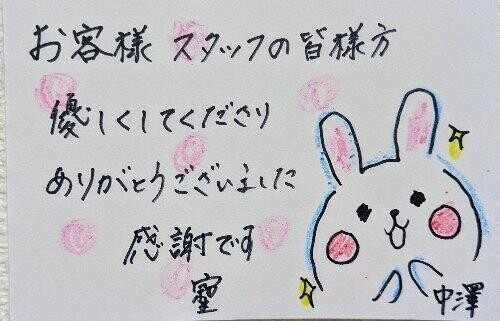 お客様 スタッフの皆様方
優しくしてくださり
ありがとうございました
感謝です
中澤